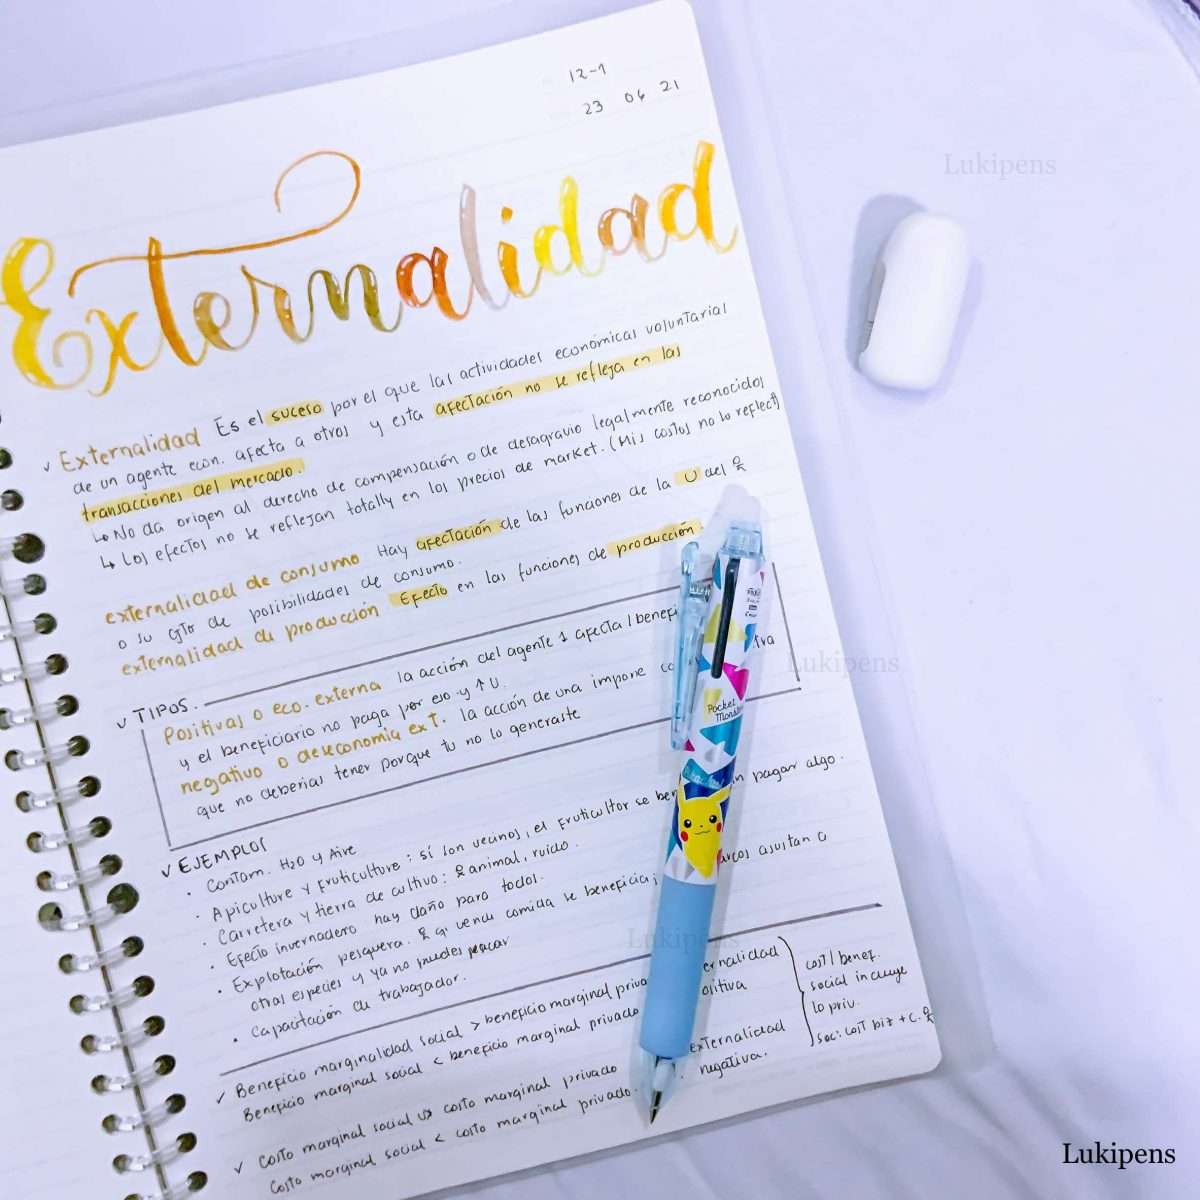 12-1
23 04 21
Externalidad
✓ Externalidad Es el suceso por el que las actividades económicas voluntarias
de un agente econ. afecta a otros y esta afectación no se refleja en las
transacciones del mercado.
↳ No da origen al derecho de compensación o de desagravio legalmente reconocidos
↳ Los efectos no se reflejan totally en los precios de market. (Mis costos no lo reflect)
externalidad de consumo Hay afectación de las funciones de la U del
o su cjto de posibilidades de consumo.
externalidad de producción Efecto en las funciones de producción.
✓ TIPOS.
Positivas o eco. externa la acción del agente 1 afecta / benefi
y el beneficiario no paga por eso y ↑ U.
negativo o deseconomía ext. la acción de una impone co tiva
que no deberías tener porque tu no lo generaste
✓ EJEMPLOS
• Contam. H2O y Aire
• Apiculture y Fruticulture: sí son vecinos, el Fruticultor se ben in pagar algo.
• Carretera y tierra de cultivo: animal, ruido.
• Efecto invernadero hay daño para todos.
• Explotación pesquera. q' vende comida se beneficia; arcos asustan a
otras especies y ya no puedes pescar
• Capacitación de trabajador.
✓ Beneficio marginalidad social > beneficio marginal priva ernalidad
Beneficio marginal social < beneficio marginal privado ositiva
✓ Costo marginal social costo marginal privado externalidad
Costo marginal social < costo marginal privado. negativa.
cost / benef.
social incluye
lo priv.
soc: cost biz + c.
Pocket
Monsters
Lukipens
Lukipens
Lukipens
Lukipens